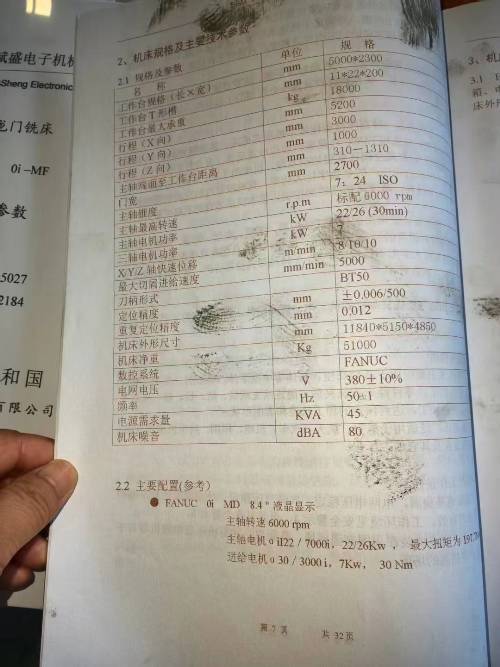 斌盛电子机械
Sheng Electronic
龙门铣床
0i-MF
参数
5027
2184
和 国
有限公司
2、机床规格及主要技术参数
2.1 规格及参数
名 称 单位 规 格
工作台规格（长×宽） mm 5000*2300
工作台T形槽 mm 11*22*200
工作台最大承重 kg 18000
行程（X向） mm 5200
行程（Y向） mm 3000
行程（Z向） mm 1000
主轴端面至工作台距离 mm 310-1310
门宽 mm 2700
主轴锥度 7：24 ISO
主轴最高转速 r.p.m 标配6000 rpm
主轴电机功率 kW 22/26 (30min)
三轴电机功率 kW 7
X/Y/Z 轴快速位移 m/min 8/10/10
最大切削进给速度 mm/min 5000
刀柄形式 BT50
定位精度 mm ±0.006/500
重复定位精度 mm 0.012
机床外形尺寸 mm 11840*5150*4850
机床净重 Kg 51000
数控系统 FANUC
电网电压 V 380±10%
频率 Hz 50±1
电源需求量 KVA 45
机床噪音 dBA 80
2.2 主要配置(参考)
● FANUC 0i MD 8.4＂液晶显示
主轴转速 6000 rpm
主轴电机α iI22／7000i，22/26Kw ，最大扭矩为197.
进给电机α30／3000i，7Kw， 30 Nm
第 7 页 共 32页
3、机
3.1
箱、电
床外